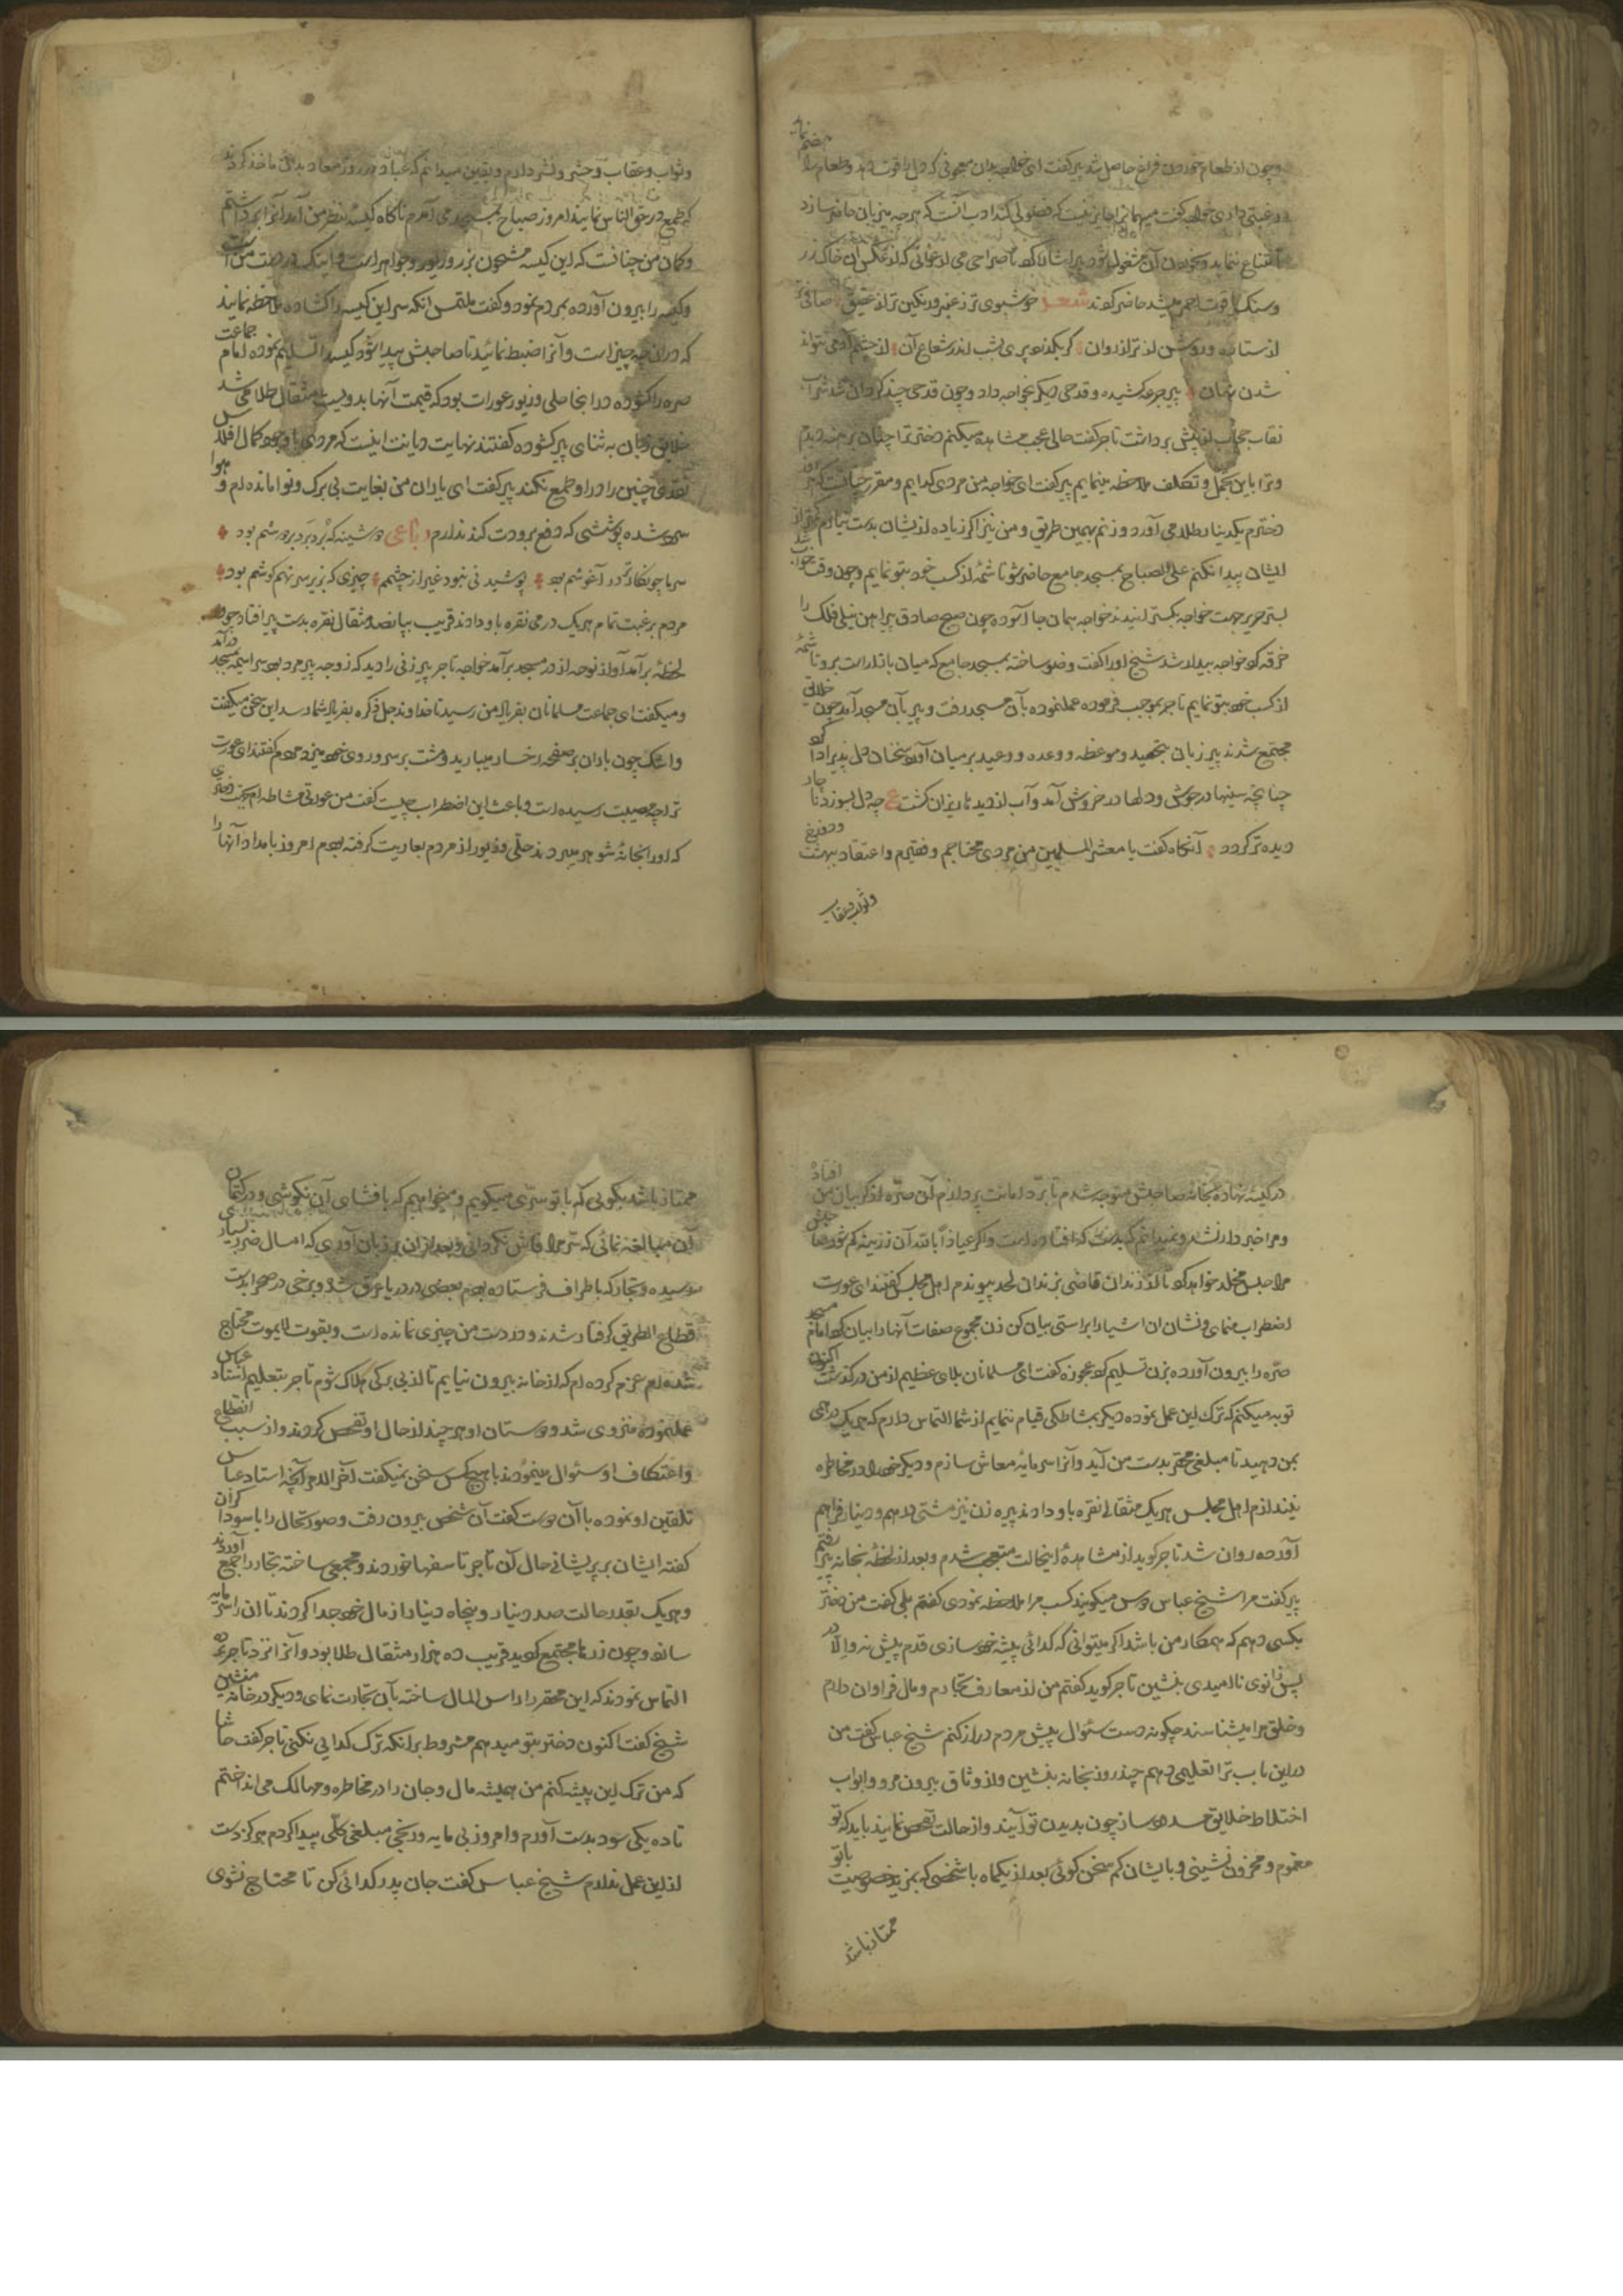 وچون از طعام خوردن فراغ حاصل شد پیر گفت ای خواجه بدان معجونی که دل را قوت دهد و طعام را هضم نماید
رغبتی داری خواجه گفت میهمانرا جایز نیست که فضولی کند ادب آنست که هرچه میزبان حاضر سازد
امتناع ننماید و بخوردن آن مشغول شود پیر اشارت کرد تا صراحی می ارغوانی که از عکس آن خاک زر
وسنک یاقوت احمر میشد حاضر کردند شعر خوشبوی تر ز عنبر و رنگین تر از عقیق صافی
از ستاره و روشن تر از روان گر بگذرد پری بشب اندر شعاع آن از چشم آدمی نتواند
شدن نهان پیر جرعه کشیده و قدحی دیگر بخواجه داد و چون قدحی چند گردان شد شراب
نقاب حجاب از پیش برداشت تاجر گفت حالی عجب مشاهده میکنم دختر ترا چنان برهنه دیدم
وترا باین تجمل و تکلف ملاحظه مینمایم پیر گفت ای خواجه من مردی گدایم و مقرر چنانست که هر روز
دخترم یکدینار طلا می آورد و زنم بهمین طریق و من نیز اگر زیاده از ایشان بدست نیارم کمتر از
ایشان پیدا نکنم علی الصباح بمسجد جامع حاضر شو تا شمهٔ از کسب خود بتو نمایم و چون وقت خواب شد
بستر حریر جهت خواجه بگسترانیدند خواجه همان جا آسوده چون صبح صادق پیراهن نیلی فلک را
خرقه کرد خواجه بیدار شد شیخ اورا گفت وضو ساخته بمسجد جامع که میان بازارست برو تا شمهٔ
از کسب خود بتو نمایم تاجر بموجب فرموده عمل نموده بآن مسجد رفت و پیر بآن مسجد آمد چون خلایق
مجتمع شدند پیر زبان بتحمید و موعظه و وعده و وعید بر میان آورد سخنان دل پذیر ادا کرد
چنانچه سینها در جوش و دلها در خروش آمد و آب از دیدها ریزان گشت ع چه دل بسوزد ناچار
دیده تر گردد آنگاه گفت یا معشر المسلمین من مردی محتاجم و فقیرم و اعتقاد ببهشت و دوزخ
وثواب وعقاب
وثواب و عقاب و حشر و نشر دارم و یقین میدانم که عباد در روز معاد بدانی ماخذ گردند
که طمع در حق الناس نمایند امروز صباح بمسجد می آمدم ناگاه کیسهٔ بنظر من آمد آنرا برداشتم
وگمان من چنانست که این کیسه مشحون بزر و زیور و جواهر است و اینک در دست من است
وکیسه را بیرون آورده بمردم نمود و گفت ملتمس انکه سر این کیسه را گشاده ملاحظه نمایند
که دران چه چیز است و آنرا ضبط نمائید تا صاحبش پیدا شود کیسه را تسلیم نموده امام جماعت
صره را گشوده درانجا حلی و زیور عورات بود که قیمت آنها بدویست مثقال طلا می شد
خلایق زبان به ثنای پیر گشوده گفتند نهایت دیانت اینست که مردی با وجود کمال افلاس
نقدی چنین را در او طمع نکند پیر گفت ای یاران من بغایت بی برک و نوا مانده ام و هوا
سرد شده پوششی که دفع برودت کند ندارم رباعی دوشینه که برد برد بر دوشم بود
سرما چو نگار در آغوشم بود پوشیدنی نبود غیر از چشمم چیزی که بزیر سر نهم گوشم بود
مردم برغبت تمام هریک درمی نقره باو دادند قریب بپانصد مثقال نقره بدست پیر افتاد چون
لحظهٔ برآمد آواز نوحه از در مسجد برآمد خواجه تاجر پیرزنی را دید که زوجه پیرمرد بود سراسیمه بمسجد درآمد
و میگفت ای جماعت مسلمانان بفریاد من رسید تا خداوند جل ذکره بفریاد شما رسد این سخن میگفت
واشک چون باران بر صفحه رخسار میبارید و مشت بر سر و روی خود میزد مردم گفتند ای عورت
ترا چه مصیبت رسیده است و باعث این اضطراب چیست گفت من عورتی مشاطه ام جهت دختری
که اورا بخانهٔ شوهر میبردند حلی و زیور از مردم بعاریت گرفته بودم امروز بامداد آنها را
در کیسه نهاده بخانهٔ صاحبش متوجه شدم تا برد امانت پردازم آن صره از گریبان من افتاد
ومرا خبردار نشد و نمیدانم که بدست که افتاده است و اگر عیاذاً بالله آن زرینه گم شود صاحبش
مرا حبس مخلد خواهد کرد تا از زندان قاضی بزندان لحد پیوندم اهل مجلس گفتند ای عورت
اضطراب منمای و نشان ان اشیارا براستی بیان کن زن مجموع صفات آنها را بیان کرد امام مسجد
صره را بیرون آورده بزن تسلیم کرد عجوزه گفت ای مسلمانان بلای عظیم از من در گذشت اکنون
توبه میکنم که ترک این عمل نموده دیگر بمشاطگی قیام ننمایم از شما التماس دارم که هریک درمی
بمن دهید تا مبلغی محقر بدست من آید و آنرا سرمایهٔ معاش سازم و دیگر خود را در مخاطره
نیندازم اهل مجلس هریک مثقالی نقره باو دادند پیره زن نیز مشتی درهم و دینار فراهم
آورده روان شد تاجر گوید از مشاهدهٔ اینحالت متعجب شدم و بعد از لحظهٔ بخانه پیر رفتم
پیر گفت مرا شیخ عباس دوس میگویند کسب مرا ملاحظه نمودی گفتم بلی گفت من دختر
بکسی دهم که همکار من باشد اگر میتوانی که گدائی پیشه خود سازی قدم پیش نه و الا در
پس زانوی ناامیدی بنشین تاجر گوید گفتم من از معارف تجارم و مال فراوان دارم
وخلق مرا میشناسند چگونه دست سئوال پیش مردم دراز کنم شیخ عباس گفت من
درین باب ترا تعلیمی دهم چند روز بخانه بنشین و از وثاق بیرون مرو و ابواب
اختلاط خلایق مسدود ساز چون بدیدن تو آیند و از حالت تفحص نمایند باید که تو
مغموم و محزون نشینی و با ایشان کم سخن گوئی بعد از یکماه با شخصی که بمزید خصوصیت با تو
ممتاز باشد
ممتاز باشد بگویی که با تو سری میگویم و میخواهم که بافشای آن نکوشی و در کتمان
آن مبالغه نمائی که سر مرا فاش نگردانی و بعد ازان بر زبان آوری که امسال ضرر بسیاری
رسیده و تجار که باطراف فرستاده بودم بعضی در دریا غرق شد و برخی در صحرا بدست
قطاع الطریق گرفتار شدند و در دست من چیزی نمانده است و بقوت لایموت محتاج
شده ام عزم کرده ام که از خانه بیرون نیایم تا از بی برگی هلاک شوم تاجر بتعلیم استاد عباس
عمل نموده منزوی شد و دوستان او هرچند از حال او تفحص کردند و از سبب انقطاع
واعتکاف او سئوال مینمودند با هیچکس سخن نمیگفت آخر الامر آنچه استاد عباس
تلقین او نموده با آن دوست گفت آن شخص بیرون رفت و صورتحال را با سوداگران
گفته ایشان بر پریشانی حال آن تاجر تاسفها خوردند و مجمعی ساخته تجار را جمع آوردند
وهریک بقدر حالت صد دینار و پنجاه دینار از مال خود جدا کردند تا ان را سرمایه
سازد و چون زرها مجتمع گردید قریب ده هزار مثقال طلا بود و آنرا نزد تاجر برده
التماس نمودند که این محقر را راس المال ساخته بآن تجارت نمای و دیگر در خانه منشین
شیخ گفت اکنون دختر بتو میدهم مشروط برانکه ترک گدایی نکنی تاجر گفت حاشا
که من ترک این پیشه کنم من همیشه مال و جان را در مخاطره و مهالک می انداختم
تا ده یکی سود بدست آورم و امروز بی مایه و رنجی مبلغی کلی پیدا کردم هرگز دست
ازین عمل ندارم شیخ عباس گفت جان پدر گدائی کن تا محتاج نشوی